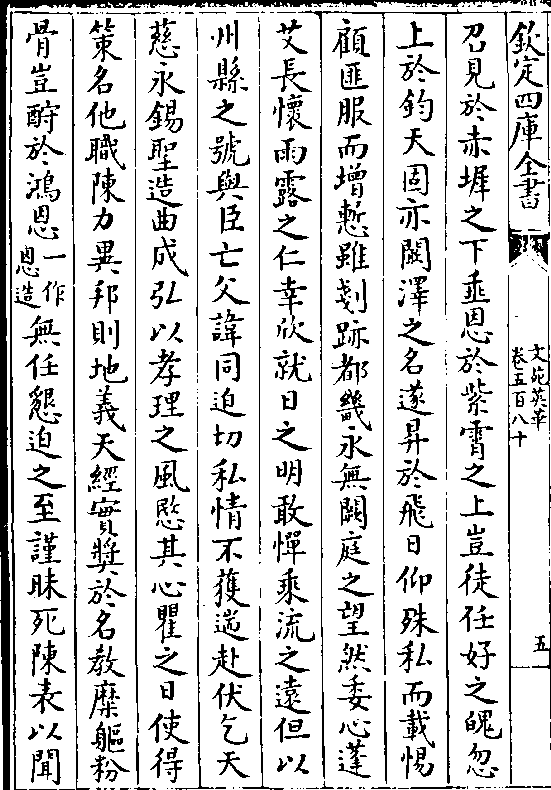 欽定四庫全書
文苑英華
卷五百八十
五
召見於赤墀之下垂恩於紫霄之上豈徒任好之媿忽
上於鈞天固亦闕澤之名遂昇於飛日仰殊私而載惕
顧匪服而增慙雖剗跡都畿永無闕庭之望然委心蓬
艾長懷雨露之仁幸欣就日之明敢憚乘流之遠但以
州縣之號與臣亡父諱同迫切私情不獲遄赴伏乞天
慈永錫聖造曲成弘以孝理之風愍其心瞿之日使得
策名他職陳力異邦則地義天經實奬於名教糜軀粉
骨豈酧於鴻恩一作恩造無任懇迫之至謹昧死陳表以聞